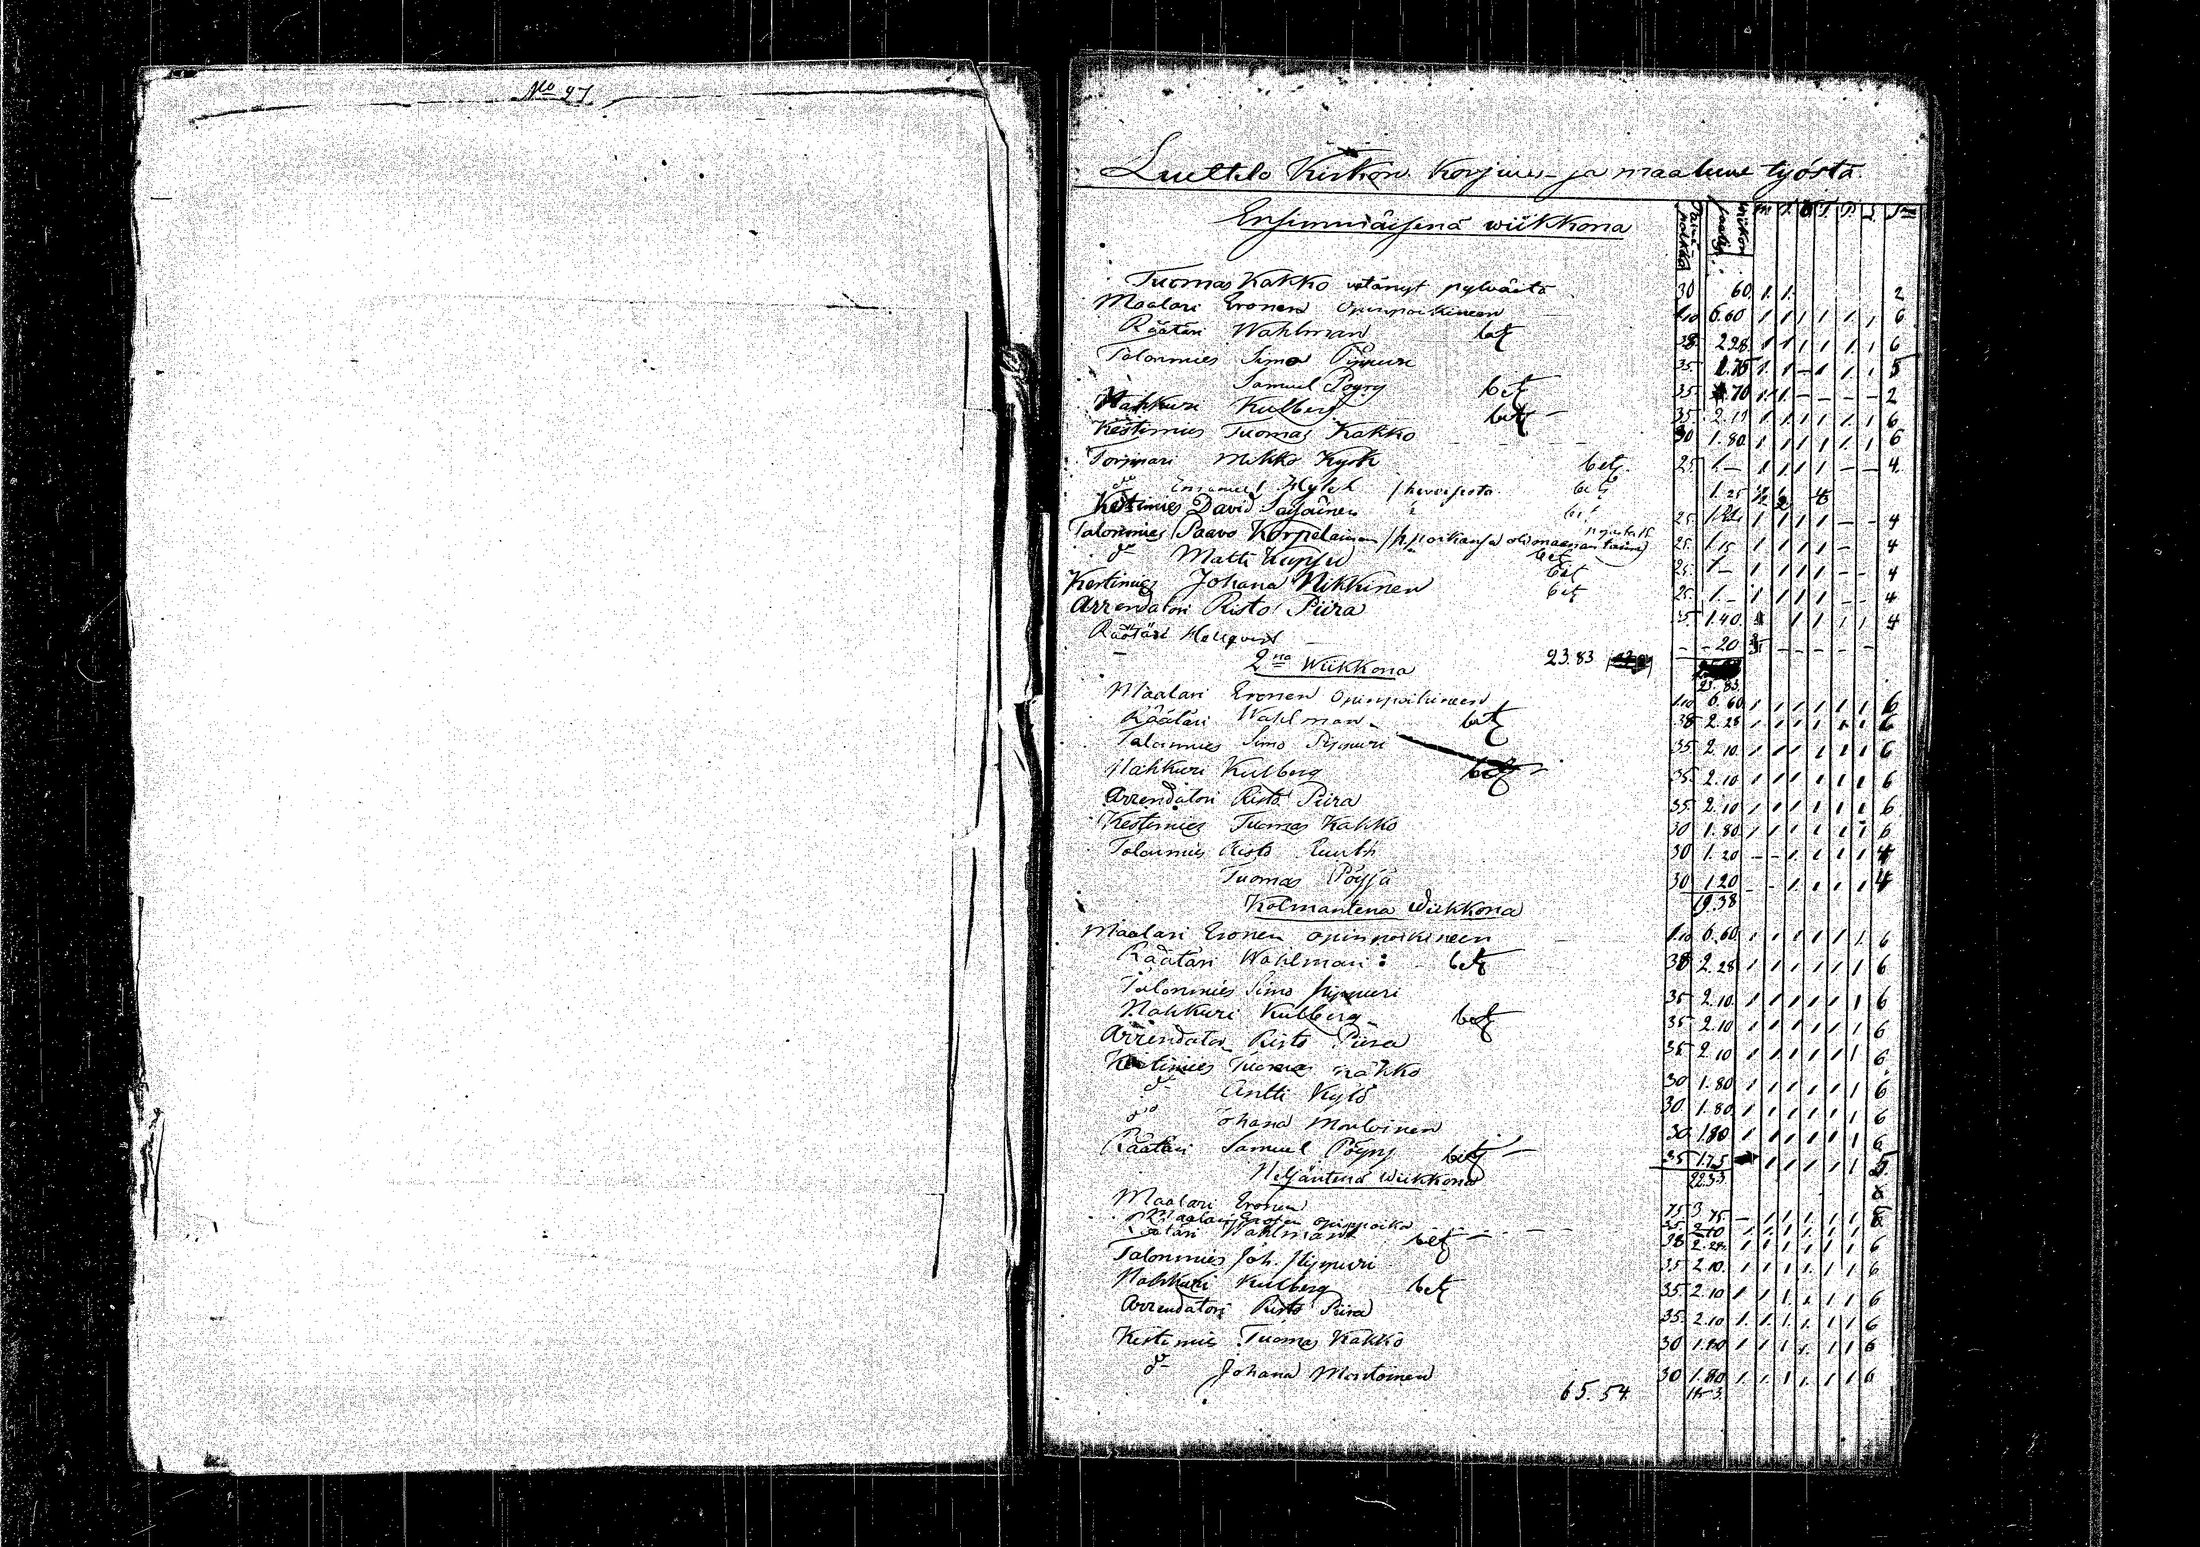 No 97
Luettelo Kirkon Korjuu- ja maalaus työstä
Ensimmäisenä wiikkona
Päivä palkka Wiikon M T K T P L
Tuomas Kakko vetänyt pylväitä 30 60 1 1 2
Maalari Eronen Opinpoikineen 1.10 6.60 1 1 1 1 1 1 6
Räätäri Wahlman bet 38 2.28 1 1 1 1 1 1 6
Talonmies Simo Pippuri 35 1.75 1 1 - 1 1 1 5
Samuel Pöyry bet 35 70 1 1 - - - - 2
Nahkuri Kulberg bet 35 2.10 1 1 1 1 1 1 6
Kestimies Tuomas Kakko 30 1.80 1 1 1 1 1 1 6
Torppari Mikko Kysk bet 25 1.- 1 1 1 1 - - 4
do Emanuel / hevosesta bet 1.25
Kestimies David bet 25 1 1 1 1 - - 4
Talonmies Paavo Korpelainen 25 1.15 1 1 1 1 - 4
do Matti bet 25 1.- 1 1 1 1 - - 4
Kestimies Johana Nikkinen bet 25 1.- 1 1 1 1 - - 4
Arrendatori Risto Piira 35 1.40 1 1 1 1 4
Räätäri Hellqvist - - 20 - - - - -
2na Wiikkona 23.83
23.83
Maalari Eronen Opinpoikineen 1.10 6.60 1 1 1 1 1 1 6
Räätäri Wahlman bet 38 2.28 1 1 1 1 1 1 6
Talonmies Simo Pippuri 35 2.10 1 1 1 1 1 1 6
Nahkuri Kulberg bet 35 2.10 1 1 1 1 1 1 6
Arrendatori Risto Piira 35 2.10 1 1 1 1 1 1 6
Kestimies Tuomas Kakko 30 1.80 1 1 1 1 1 1 6
Talonmies Risto 30 1.20 - - 1 1 1 1 4
Tuomas Pöyjä 30 1.20 - - 1 1 1 1 4
Kolmantena Wiikkona 19.38
Maalari Eronen opinpoikineen 1.10 6.60 1 1 1 1 1 1 6
Räätäri Wahlman bet 38 2.28 1 1 1 1 1 1 6
Talonmies Simo Pippuri 35 2.10 1 1 1 1 1 1 6
Nahkuri Kulberg bet 35 2.10 1 1 1 1 1 1 6
Arrendatori Risto Piira 35 2.10 1 1 1 1 1 1 6
Kestimies Tuomas Kakko 30 1.80 1 1 1 1 1 1 6
do Antti Kylö 30 1.80 1 1 1 1 1 1 6
do Johana 30 1.80 1 1 1 1 1 1 6
Räätäri Samuel Pöyry bet 35 1.75 1 1 1 1 1 5
Neljäntenä Wiikkona 22.33
Maalari Eronen 75 3.75 - 1 1 1 1 1
Maalari Eronen opinpoika 35 2.10 1 1 1 1 1 1 6
Räätäri Wahlman bet 38 2.28 1 1 1 1 1 1 6
Talonmies Joh. Pippuri 35 2.10 1 1 1 1 1 1 6
Nahkuri Kulberg bet 35 2.10 1 1 1 1 1 1 6
Arrendatori Risto Piira 35 2.10 1 1 1 1 1 1 6
Kestimies Tuomas Kakko 30 1.80 1 1 1 1 1 1 6
do Johana 30 1.80 1 1 1 1 1 1 6
65.54